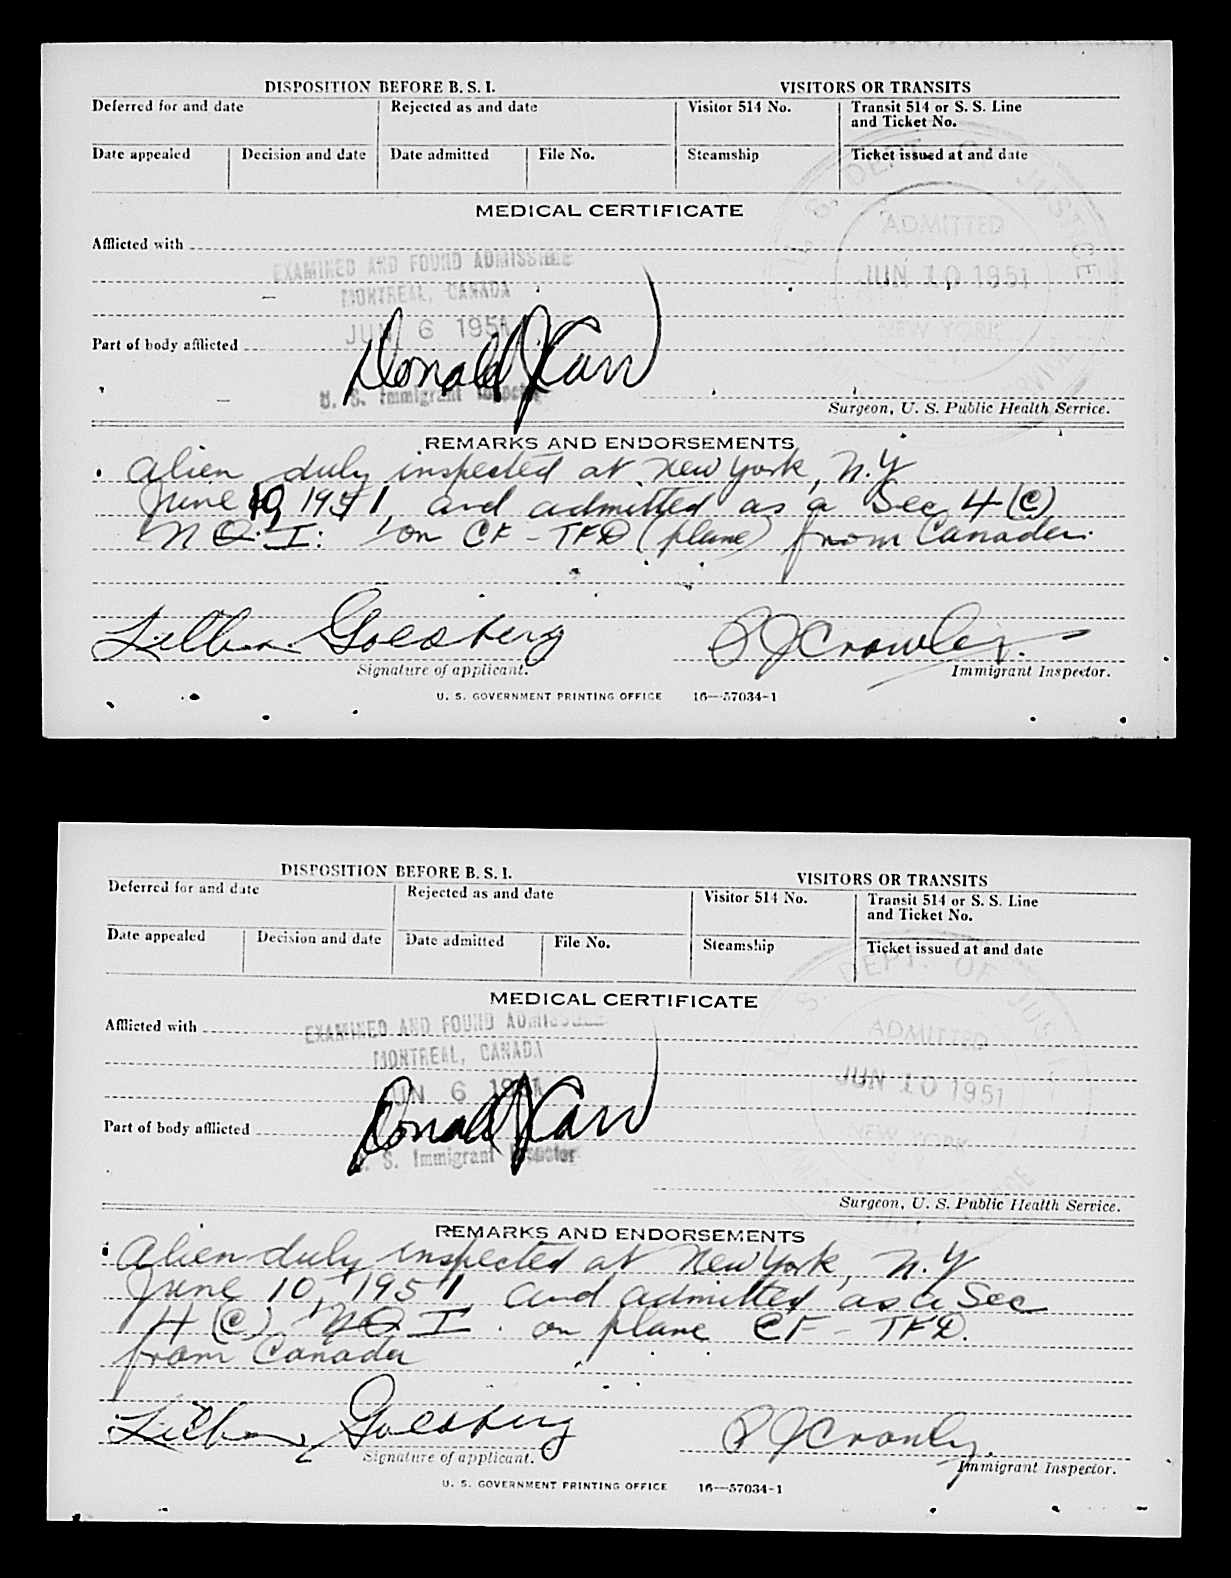 DISPOSITION BEFORE B. S. I. VISITORS OR TRANSITS
Deferred for and date Rejected as and date Visitor 514 No. Transit 514 or S. S. Line
and Ticket No.
Date appealed Decision and date Date admitted File No. Steamship Ticket issued at and date
U. S. DEPT. OF JUSTICE
MEDICAL CERTIFICATE
ADMITTED
Afflicted with
EXAMINED AND FOUND ADMISSIBLE
JUN 10 1951
MONTREAL, CANADA
JUN 6 1951
NEW YORK
Part of body afflicted
Donald J Carr
U. S. Immigrant Inspector
Surgeon, U. S. Public Health Service.
REMARKS AND ENDORSEMENTS
Alien duly inspected at New York, N.Y
June 10, 1951, and admitted as a Sec 4 (c)
N Q. I. on CF - TFD (plane) from Canada.
Lillian Goldberg P J Crowley
Signature of applicant. Immigrant Inspector.
U. S. GOVERNMENT PRINTING OFFICE 16—57034-1
DISPOSITION BEFORE B. S. I. VISITORS OR TRANSITS
Deferred for and date Rejected as and date Visitor 514 No. Transit 514 or S. S. Line
and Ticket No.
Date appealed Decision and date Date admitted File No. Steamship Ticket issued at and date
U. S. DEPT. OF JUSTICE
MEDICAL CERTIFICATE
Afflicted with
EXAMINED AND FOUND ADMISSIBLE
ADMITTED
MONTREAL, CANADA
JUN 10 1951
JUN 6 1951
Part of body afflicted
NEW YORK
Donald J Carr
U. S. Immigrant Inspector
Surgeon, U. S. Public Health Service.
REMARKS AND ENDORSEMENTS
Alien duly inspected at New York, N.Y
June 10, 1951, and admitted as a Sec
4 (c) N Q I. on plane CF - TFD.
from Canada
Lillian Goldberg P J Crowley
Signature of applicant. Immigrant Inspector.
U. S. GOVERNMENT PRINTING OFFICE 16—57034-1